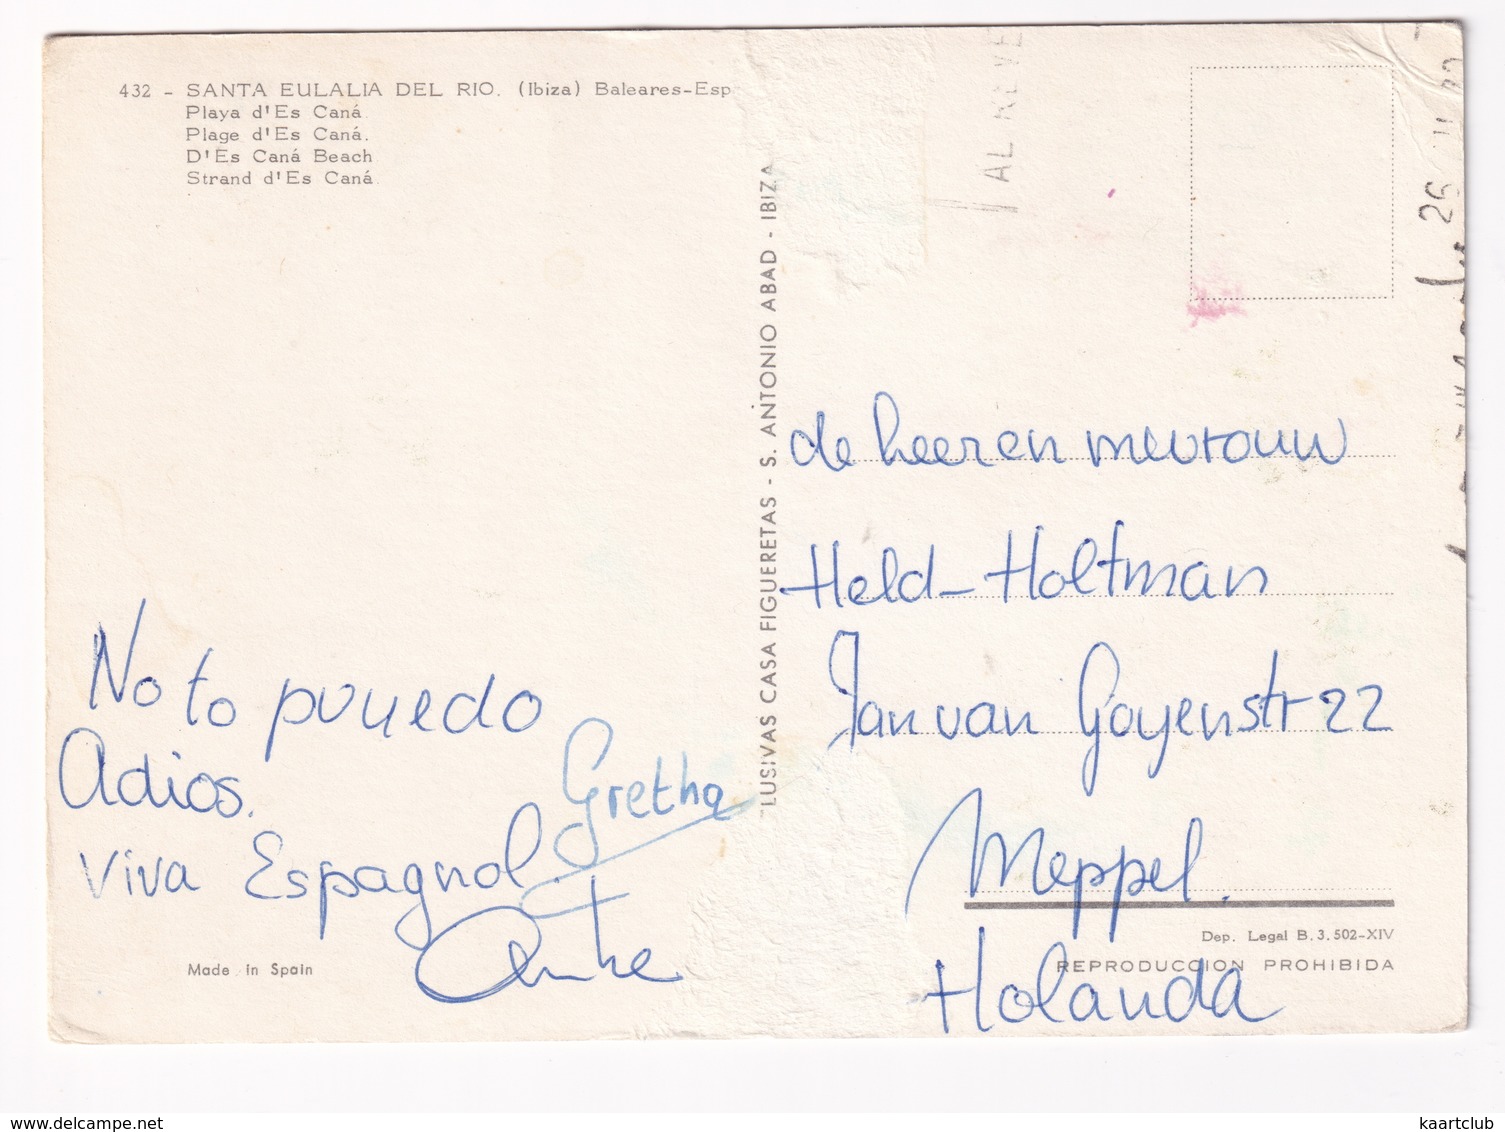 432 - SANTA EULALIA DEL RIO. (Ibiza) Baleares-Esp
Playa d'Es Caná
Plage d'Es Caná.
D'Es Caná Beach
Strand d'Es Caná
No to pouuedo
Adios.
Viva Espagnol.
Gretha
Anke
Made in Spain
LUSIVAS CASA FIGUERETAS - S. ANTONIO ABAD - IBIZA
AL REVE
26
de heer en mevrouw
Held-Holtman
Jan van Goyenstr 22
Meppel.
Holanda
Dep. Legal B. 3.502-XIV
REPRODUCCION PROHIBIDA
www.delcampe.net
kaartclub